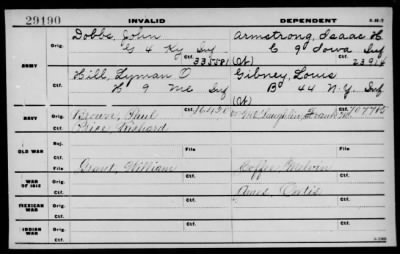 29190 INVALID DEPENDENT
ARMY
Orig. Dobbs, John Armstrong, Isaac H.
G 4 Ky Inf C 9 Iowa Inf
Ctf. 335581 (Ct)
Orig. Hill, Lyman O Gibney, Louis
H 9 Me Inf B 44 N.Y. Inf
Ctf. (Ct)
NAVY
Orig. Brown, Paul McLaughlin, Frank
Ctf. Price Richard
OLD WAR
Rej.
File File
WAR OF 1812
Orig. Grant, William Melvin
Ctf. Ctf.
MEXICAN WAR
Orig.
Ctf. Ctf.
INDIAN WAR
Orig.
Ctf. Ctf.